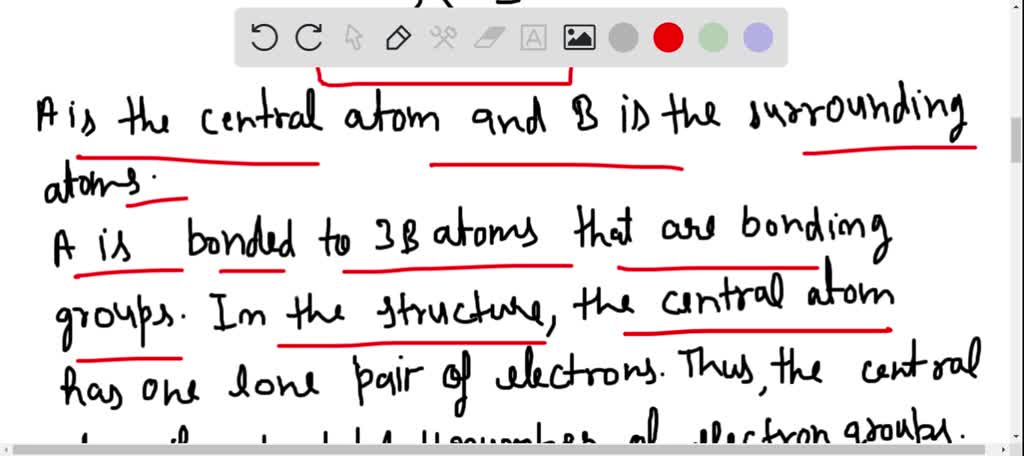 A is the central atom and B is the surrounding
atoms.
A is bonded to 3B atoms that are bonding
groups. In the structure, the central atom
has one lone pair of electrons. Thus, the central
number of electron groups.